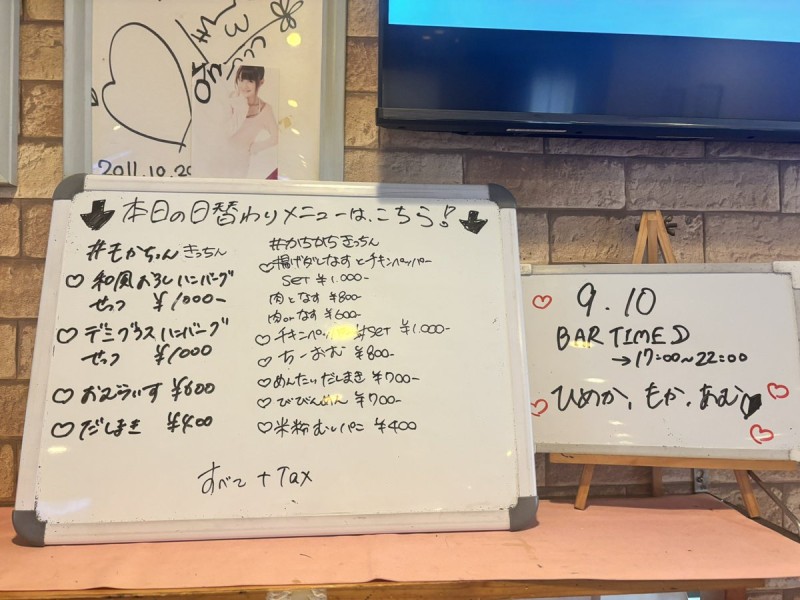 2011.10.20
本日の日替わりメニューは、こちら!
#もかちゃんきっちん
♡和風おろしハンバーグ
せっつ ¥1000-
♡デミグラスハンバーグ
せっつ ¥1000
♡おむらいす ¥600
♡だしまき ¥400
#かちがちきっちん
♡揚げダレなすとチキンペッパー
SET ¥1.000-
肉となす ¥800-
肉orなす ¥600-
♡チキンペッパー SET ¥1.000-
♡ちーおむ ¥800-
♡めんたいだしまき ¥700-
♡びびんめん ¥700-
♡米粉むしパン ¥400
すべて + Tax
♡ 9.10
BAR TIME
→17:00~22:00
♡ひめか、もか、あむ♡